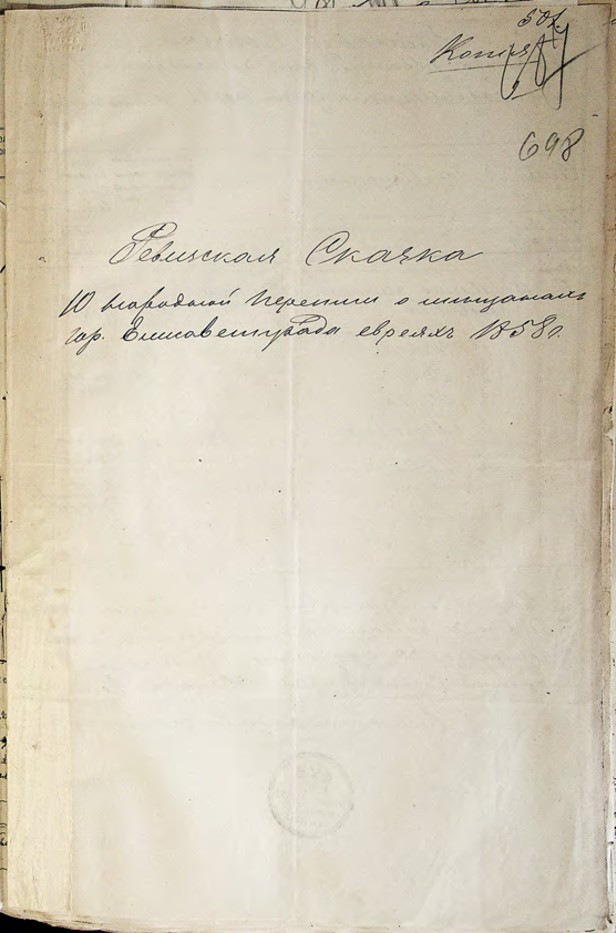 501
Копия
698
Ревизская Сказка
10 народной переписи о мещанахъ
гор. Елисаветграда евреяхъ 1858 г.